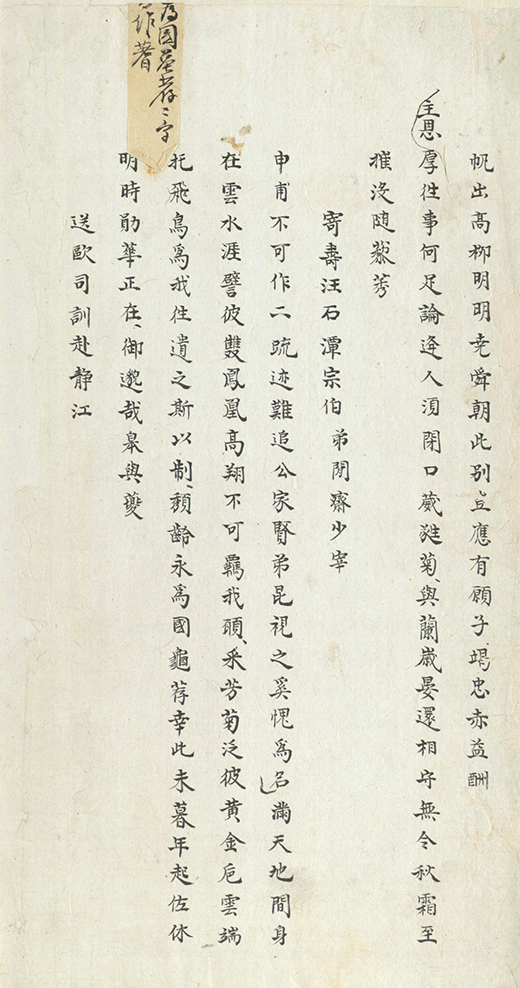 帆出高柳明明堯舜朝此别豈應有願子竭忠赤益酬
主恩厚往事何足論逢人須閉口葳蕤菊與蘭歲晏還相守無令秋霜至
摧没随藜莠
寄壽汪石潭宗伯弟閒齋少宰
申甫不可作二疏迹難追公家賢弟昆視之奚愧爲名滿天地間身
在雲水涯譬彼雙鳳凰高翔不可羈我頭采芳菊泛彼黄金巵雲端
托飛鳥爲我往遺之斯以制頽齡永爲國龜荐幸此未暮年起佐休
明時勛華正在御邈哉皋與夔
送歐司訓赴静江
爲國
作蓍